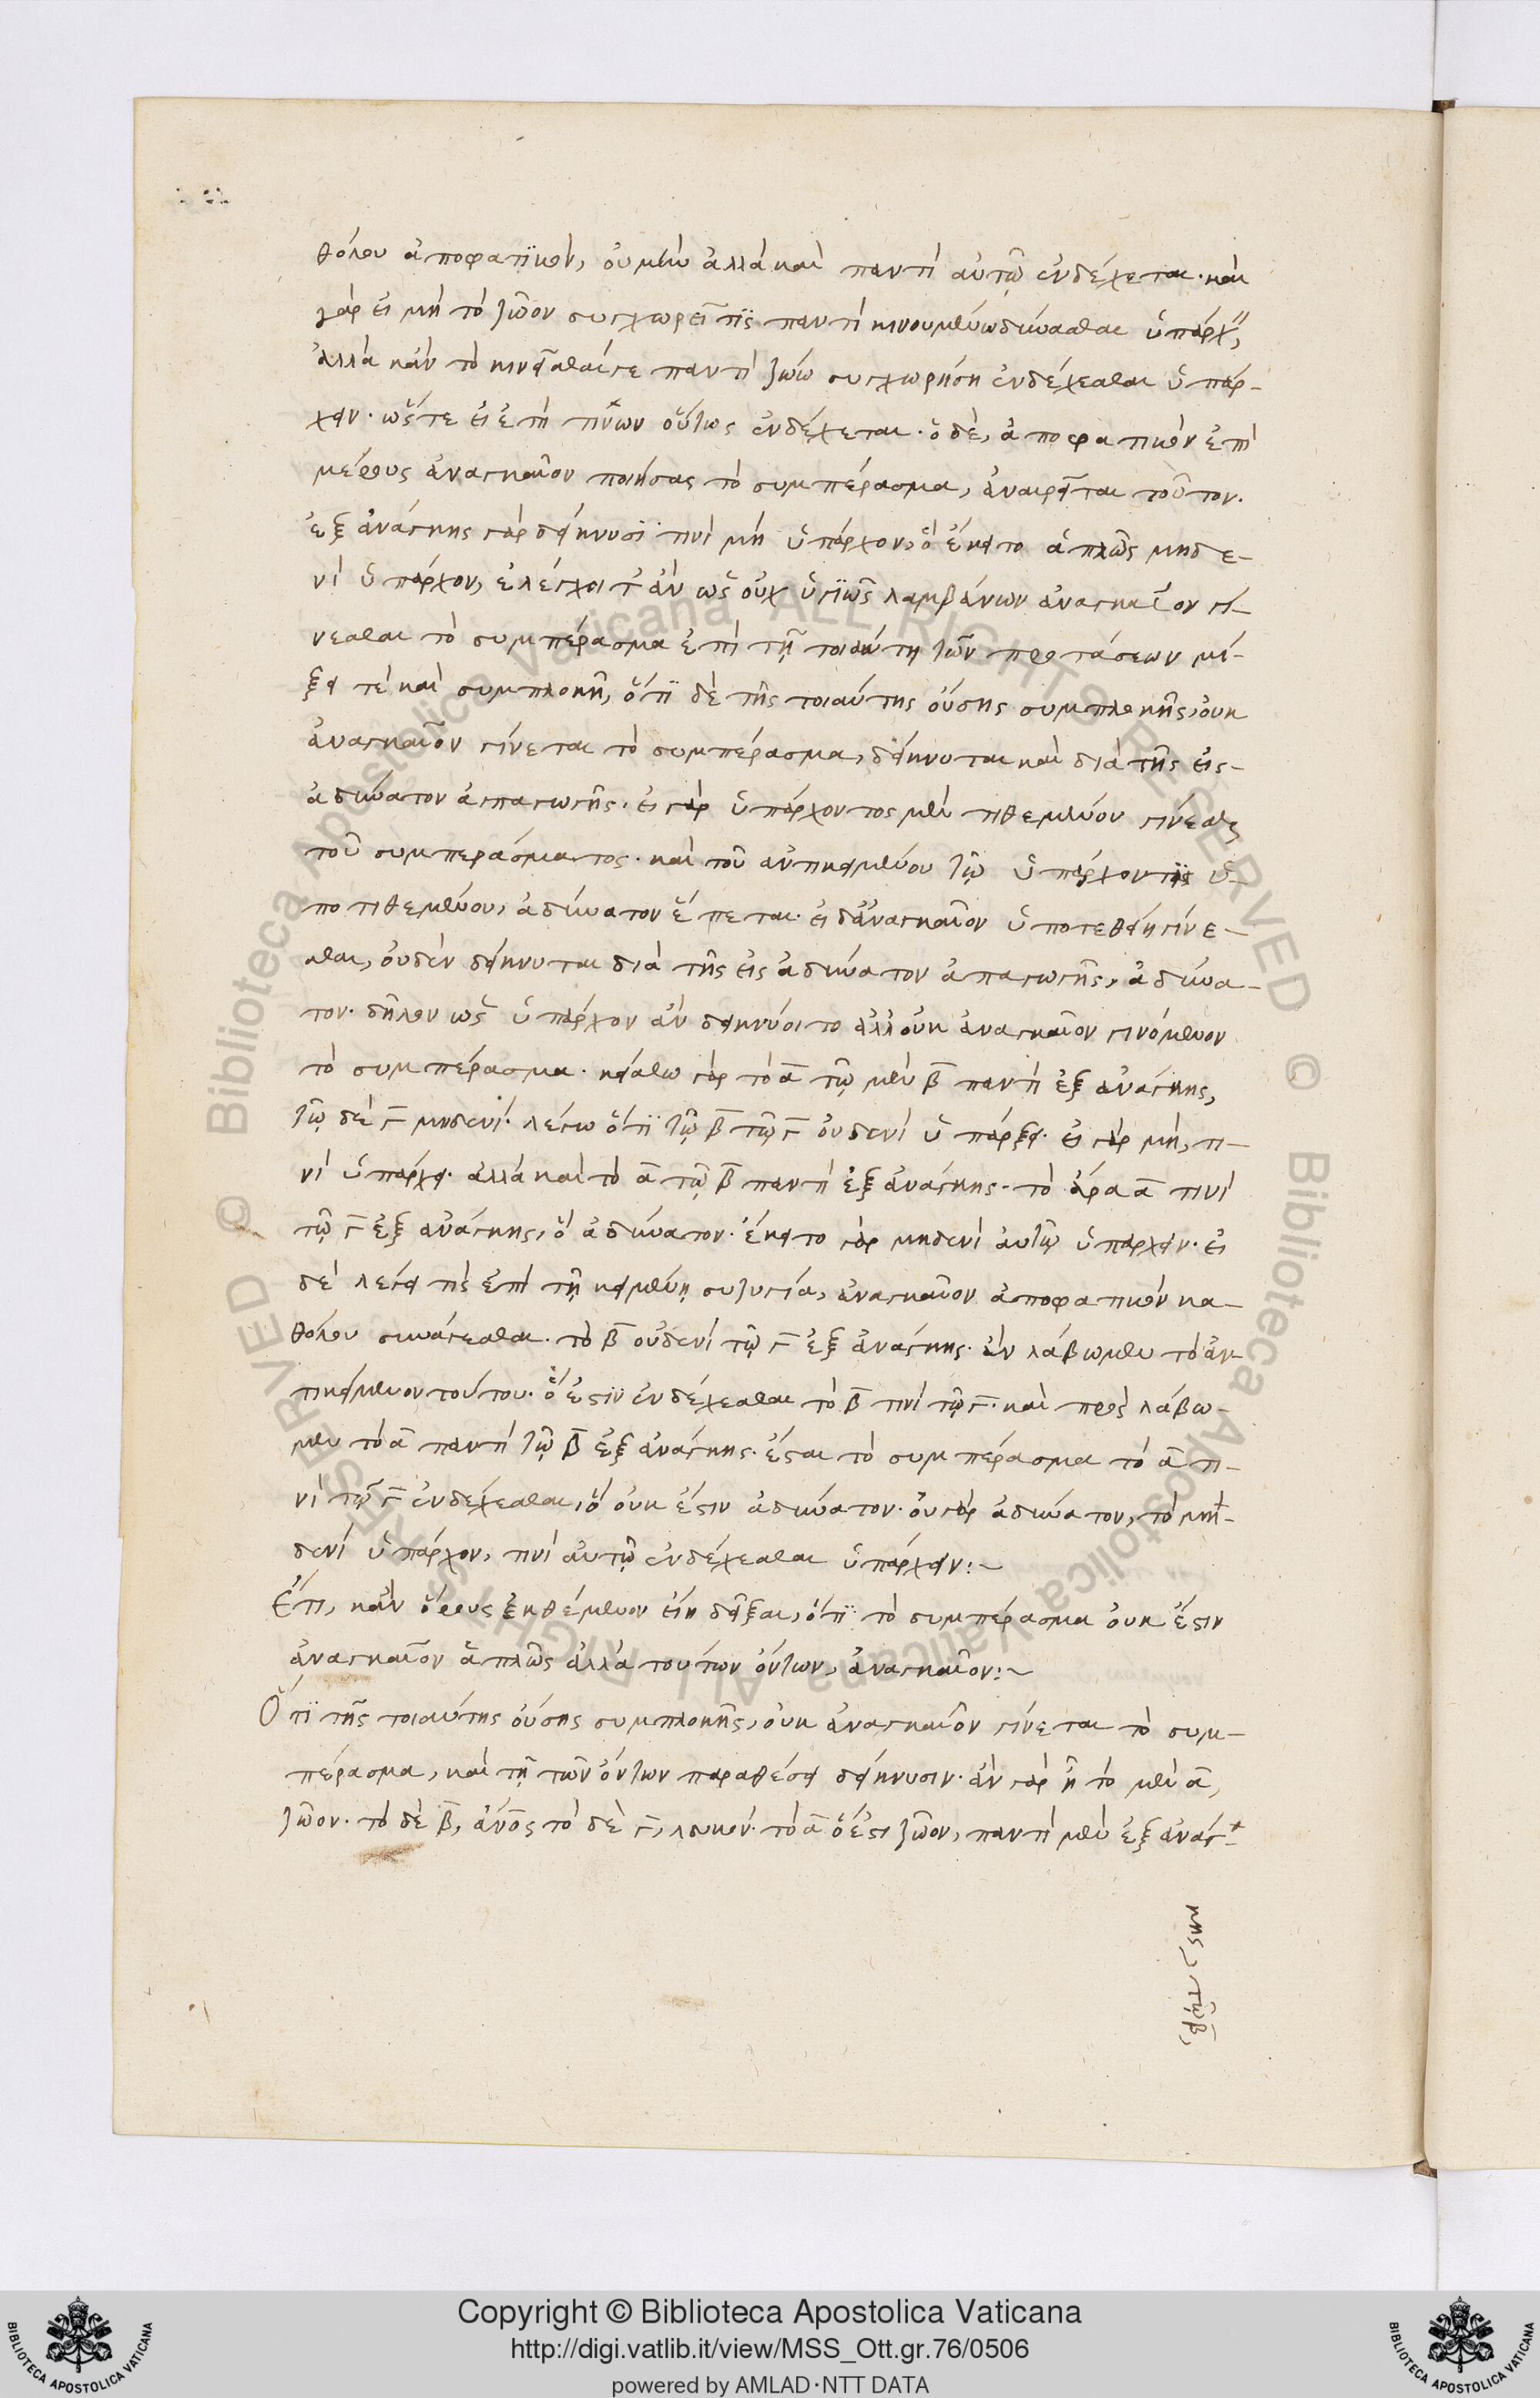 θόλου ἀποφατϊκὸν, οὐ μὴν ἀλλὰ καὶ παντὶ αὐτῶ ἐνδέχεται· καὶ
γὰρ εἰ μὴ τὸ ζῶον συγχωρεῖ τϊς παντὶ κινουμένω δύνασθαι ὑπάρχειν,
ἀλλὰ κἂν τὸ κινεῖσθαί γε παντὶ ζώω συγχωρήση ἐνδέχεσθαι ὑπάρ-
χειν· ὥστε εἰ ἐπὶ τινων οὕτως ἐνδέχεται· ὁ δὲ, ἀποφατικὸν ἐπὶ
μέρους ἀναγκαῖον ποιήσας τὸ συμπέρασμα, ἀναιρεῖται τοῦτον.
ἐξ ἀνάγκης γὰρ δείκνυσϊ τινὶ μὴ ὑπάρχον, ὃ ἔκειτο ἁπλῶς μηδε-
νὶ ὑπάρχον, ἐλέγχοιτ' ἂν ὡς οὐχ ὑγϊῶς λαμβάνων ἀναγκαῖον γί-
νεσθαι τὸ συμπέρασμα ἐπὶ τῆ τοιαύτη τῶν προτάσεων μί-
ξει τὲ καὶ συμπλοκῆ, ὅτϊ δὲ τῆς τοιαύτης οὔσης συμπλοκῆς, οὐκ
ἀναγκαῖον γίνεται τὸ συμπέρασμα, δείκνυται καὶ διὰ τῆς εἰς
ἀδύνατον ἀπαγωγῆς. εἰ γὰρ ὑπάρχοντος μὲν τιθεμένου γίνεσθαι
τοῦ συμπεράσματος· καὶ τοῦ ἀντικειμένου τῶ ὑπάρχοντϊ ὑ-
ποτιθεμένου, ἀδύνατον ἕπεται· εἰ δ' ἀναγκαῖον ὑποτεθείη γίνε-
σθαι, οὐδὲν δείκνυται διὰ τῆς εἰς ἀδύνατον ἀπαγωγῆς, ἀδύνα-
τον· δῆλον ὡς ὑπάρχον ἂν δεικνύοιτο ἀλλ' οὐκ ἀναγκαῖον γινόμενον
τὸ συμπέρασμα· κείσθω γὰρ τὸ α τῶ μὲν β παντὶ ἐξ ἀνάγκης,
τῶ δὲ γ μηδενί· λέγω ὅτϊ τῶ β τῶ γ οὐδενὶ ὑπάρξει· εἰ γὰρ μὴ, τι-
νὶ ὑπάρχει· ἀλλὰ καὶ τὸ α τῶ β παντὶ ἐξ ἀνάγκης· τὸ ἄρα α τινὶ
τῶ γ ἐξ ἀνάγκης, ὃ ἀδύνατον· ἔκειτο γὰρ μηδενὶ αὐτῶ ὑπάρχειν· εἰ
δὲ λέγει τὶς ἐπὶ τῆ κειμένη συζυγία, ἀναγκαῖον ἀποφατικὸν κα-
θόλου συνάγεσθαι· τὸ β οὐδενὶ τῶ γ ἐξ ἀνάγκης· ἐὰν λάβωμεν τὸ ἀν-
τικείμενον τούτου· ὅ ἐστϊν ἐνδέχεσθαι τὸ β τινὶ τῶ γ· καὶ προσλάβω-
μεν τὸ α παντὶ τῶ β ἐξ ἀνάγκης· ἔσται τὸ συμπέρασμα τὸ α τι-
νὶ τῶ γ ἐνδέχεσθαι, ὃ οὐκ ἔστιν ἀδύνατον· οὐ γὰρ ἀδύνατον, τὸ μη-
δενὶ ὑπάρχον, τινὶ αὐτῶ ἐνδέχεσθαι ὑπάρχειν:~
Ἔτι, κἂν ὅρους ἐκθέμενον εἴη δεῖξαι, ὅτϊ τὸ συμπέρασμα οὐκ ἔστιν
ἀναγκαῖον ἁπλῶς ἀλλὰ τούτων ὄντων, ἀναγκαῖον:~
Ὅτϊ τῆς τοιαύτης οὔσης συμπλοκῆς, οὐκ ἀναγκαῖον γίνεται τὸ συμ-
πέρασμα, καὶ τῆ τῶν ὄντων παραθέσει δείκνυσιν· ἂν γὰρ ἦ τὸ μὲν α,
ζῶον· τὸ δὲ β, ἄνος τὸ δὲ γ, λευκόν· τὸ α ὅ ἐστι ζῶον, παντὶ μὲν ἐξ ἀνάγ-
κης τῶ β,
Copyright © Biblioteca Apostolica Vaticana
http://digi.vatlib.it/view/MSS_Ott.gr.76/0506
powered by AMLAD·NTT DATA